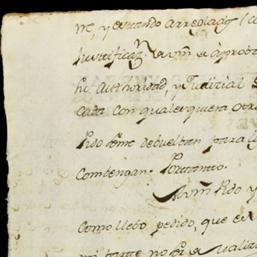 me, y estando arreglada
Justificaz.n a vm̃ approba
su authoridad, y Judicial
Cada Con qualesquiera otra
Pido seme debuelban para
Combengan. Portanto.
A vm̃ Pido y
Como llebo pedido, que es
mi parte